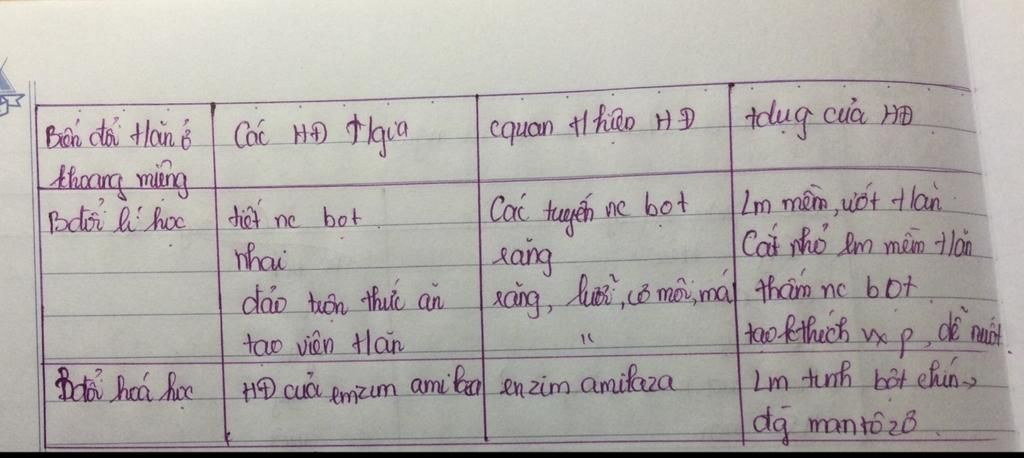 Biến đổi t/ăn ở
khoang miệng
Các HĐ t/gia
cquan t/hiện HĐ
tdụg của HĐ
Bđổi lí học
tiết nc bọt
nhai
đảo trộn thức ăn
tạo viên t/ăn
Các tuyến nc bọt
răng
răng, lưỡi, cơ môi, má
"
Lm mềm, ướt t/ăn
Cắt nhỏ lm mềm t/ăn
thấm nc bọt
tạo kthích vx p, dễ nuốt
Bđổi hoá học
HĐ của enzim amilaza
enzim amilaza
Lm tinh bột chín →
đg mantôzơ